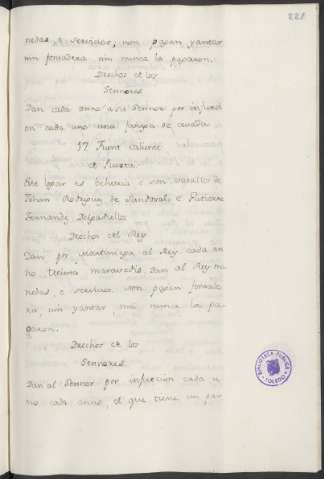 221
nedas, e servicios, non pagan yantar
nin fonsadera nin nunca la pagaron.
Derechos de los
Sennores
Dan cada anno a su Sennor por infurcion
en cada uno una fanega de cevada
57 Fuera
de Rivera.
Este logar es behetria e son vasallos de
Johan Rodriguez de Sandoval e Gutierre
Fernandez Delgadiello
Derechos del Rey
Dan por Martiniega al Rey cada an-
no, maravedis. Dan al Rey mo-
nedas, e servicios, non pagan fonsade-
ra, nin yantar, nin nunca la pa-
garon.
Derechos de los
Sennores
Dan al Sennor por infurcion cada u-
no cada anno, el que tiene un par
BIBLIOTECA PUBLICA
TOLEDO